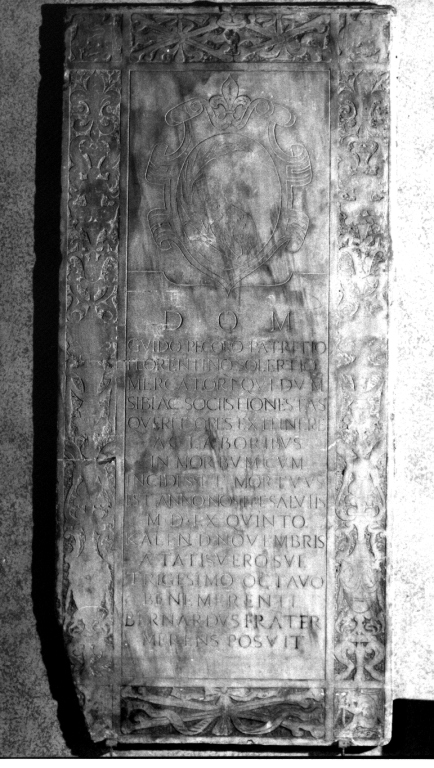 D O M
GVIDO PECORO PATRITIO
FLORENTINO SOLERTIQ
MERCATORI QVI DVM
SIBI AC SOCIIS HONESTAS
QVAERERET
LABORIBVS
IN MORBVM CVM
INCIDISSET MORTVVS
EST ANNO NOSTRE SALVTIS
M D QVINTO
KALEN D NOVEMBRIS
ÆTATIS VERO SVE
TRIGESIMO OCTAVO
BENEMERENTI
BERNARDVS FRATER
MERENS POSVIT